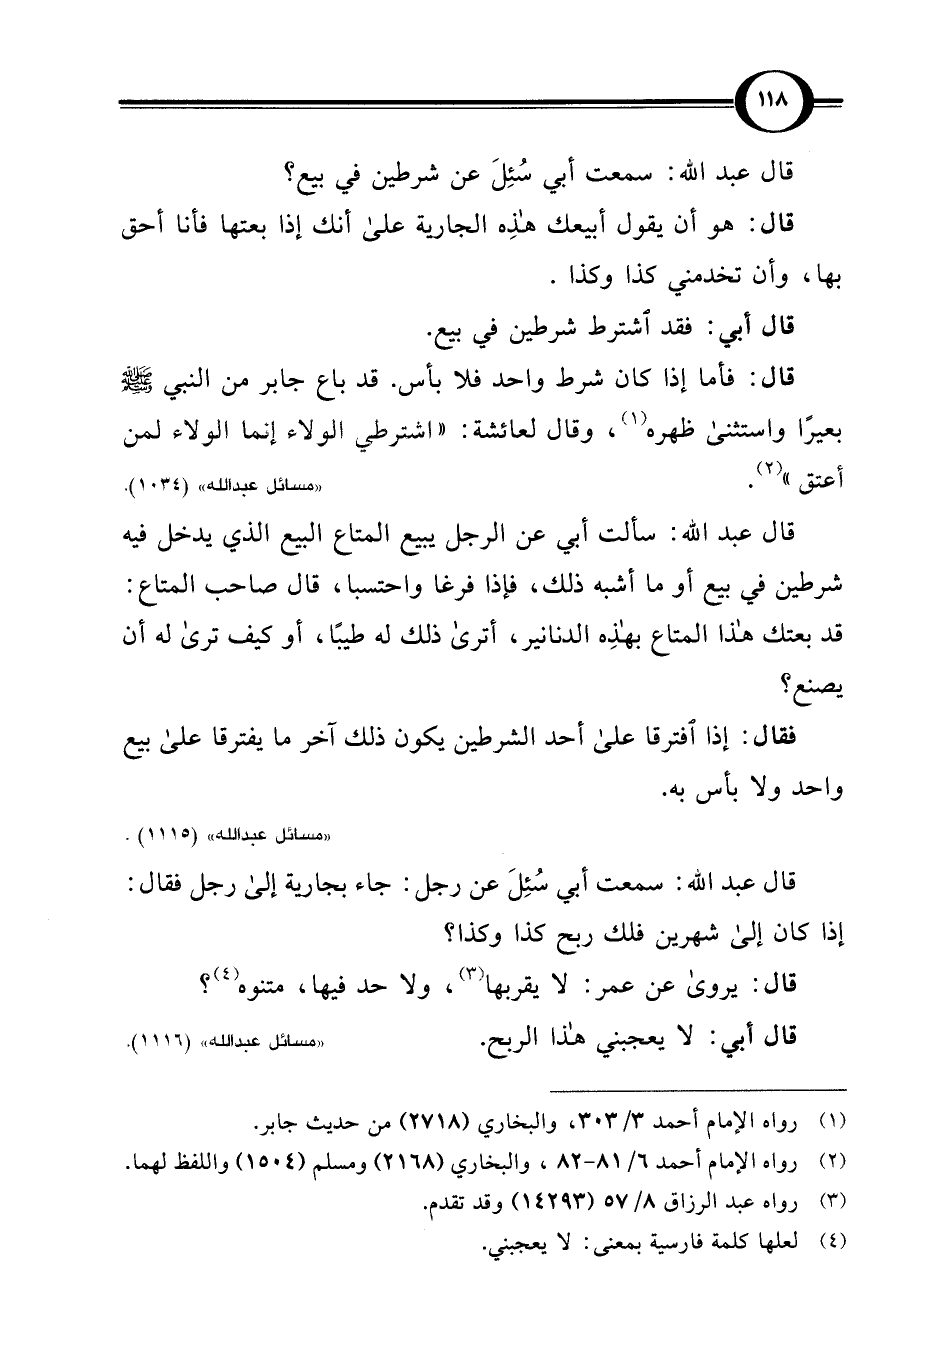 ١١٨
قال عبد الله: سمعت أبي سُئِلَ عن شرطين في بيع؟
قال: هو أن يقول أبيعك هذِه الجارية علىٰ أنك إذا بعتها فأنا أحق
بها، وأن تخدمني كذا وكذا .
قال أبي: فقد ٱشترط شرطين في بيع.
قال: فأما إذا كان شرط واحد فلا بأس. قد باع جابر من النبي ﷺ
بعيرًا واستثنىٰ ظهره(١)، وقال لعائشة: «اشترطي الولاء إنما الولاء لمن
أعتق»(٢). «مسائل عبدالله» (١٠٣٤).
قال عبد الله: سألت أبي عن الرجل يبيع المتاع البيع الذي يدخل فيه
شرطين في بيع أو ما أشبه ذلك، فإذا فرغا واحتسبا، قال صاحب المتاع:
قد بعتك هذا المتاع بهذِه الدنانير، أترىٰ ذلك له طيبًا، أو كيف ترىٰ له أن
يصنع؟
فقال: إذا ٱفترقا علىٰ أحد الشرطين يكون ذلك آخر ما يفترقا علىٰ بيع
واحد ولا بأس به.
«مسائل عبدالله» (١١١٥) .
قال عبد الله: سمعت أبي سُئِلَ عن رجل: جاء بجارية إلىٰ رجل فقال:
إذا كان إلىٰ شهرين فلك ربح كذا وكذا؟
قال: يروىٰ عن عمر: لا يقربها(٣)، ولا حد فيها، متنوه(٤)؟
قال أبي: لا يعجبني هذا الربح. «مسائل عبدالله» (١١١٦).
(١) رواه الإمام أحمد ٣/ ٣٠٣، والبخاري (٢٧١٨) من حديث جابر.
(٢) رواه الإمام أحمد ٦/ ٨١-٨٢ ، والبخاري (٢١٦٨) ومسلم (١٥٠٤) واللفظ لهما.
(٣) رواه عبد الرزاق ٨/ ٥٧ (١٤٢٩٣) وقد تقدم.
(٤) لعلها كلمة فارسية بمعنى: لا يعجبني.